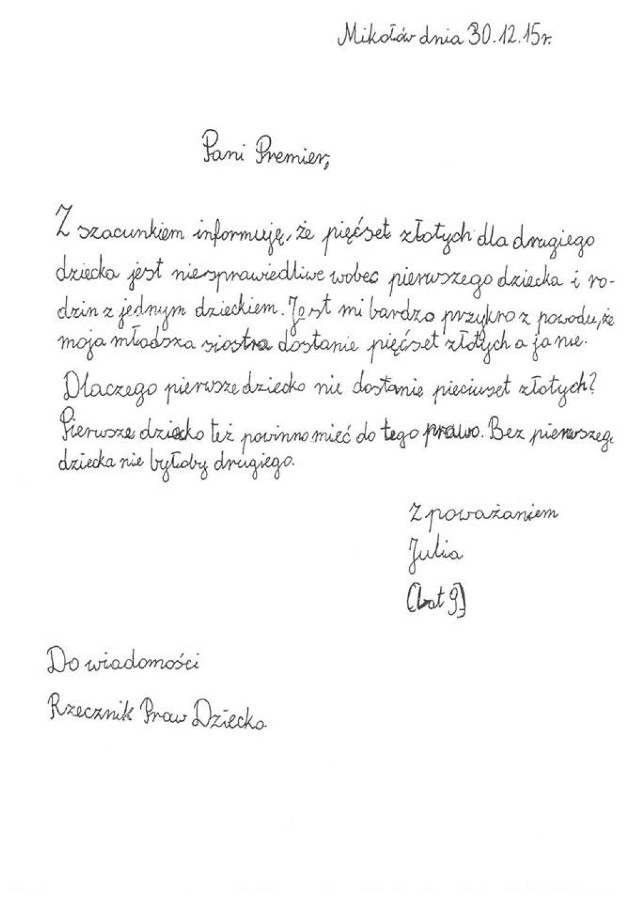 Mikołów dnia 30.12.15r.
Pani Premier,
Z szacunkiem informuję, że pięćset złotych dla drugiego
dziecka jest niesprawiedliwe wobec pierwszego dziecka i ro-
dzin z jednym dzieckiem. Jest mi bardzo przykro z powodu, że
moja młodsza siostra dostanie pięćset złotych a ja nie.
Dlaczego pierwsze dziecko nie dostanie pieciuset złotych?
Pierwsze dziecko też powinno mieć do tego prawo. Bez pierwszeg
dziecka nie byłoby drugiego.
Z poważaniem
Julia
(lat 9)
Do wiadomości
Rzecznik Praw Dziecka